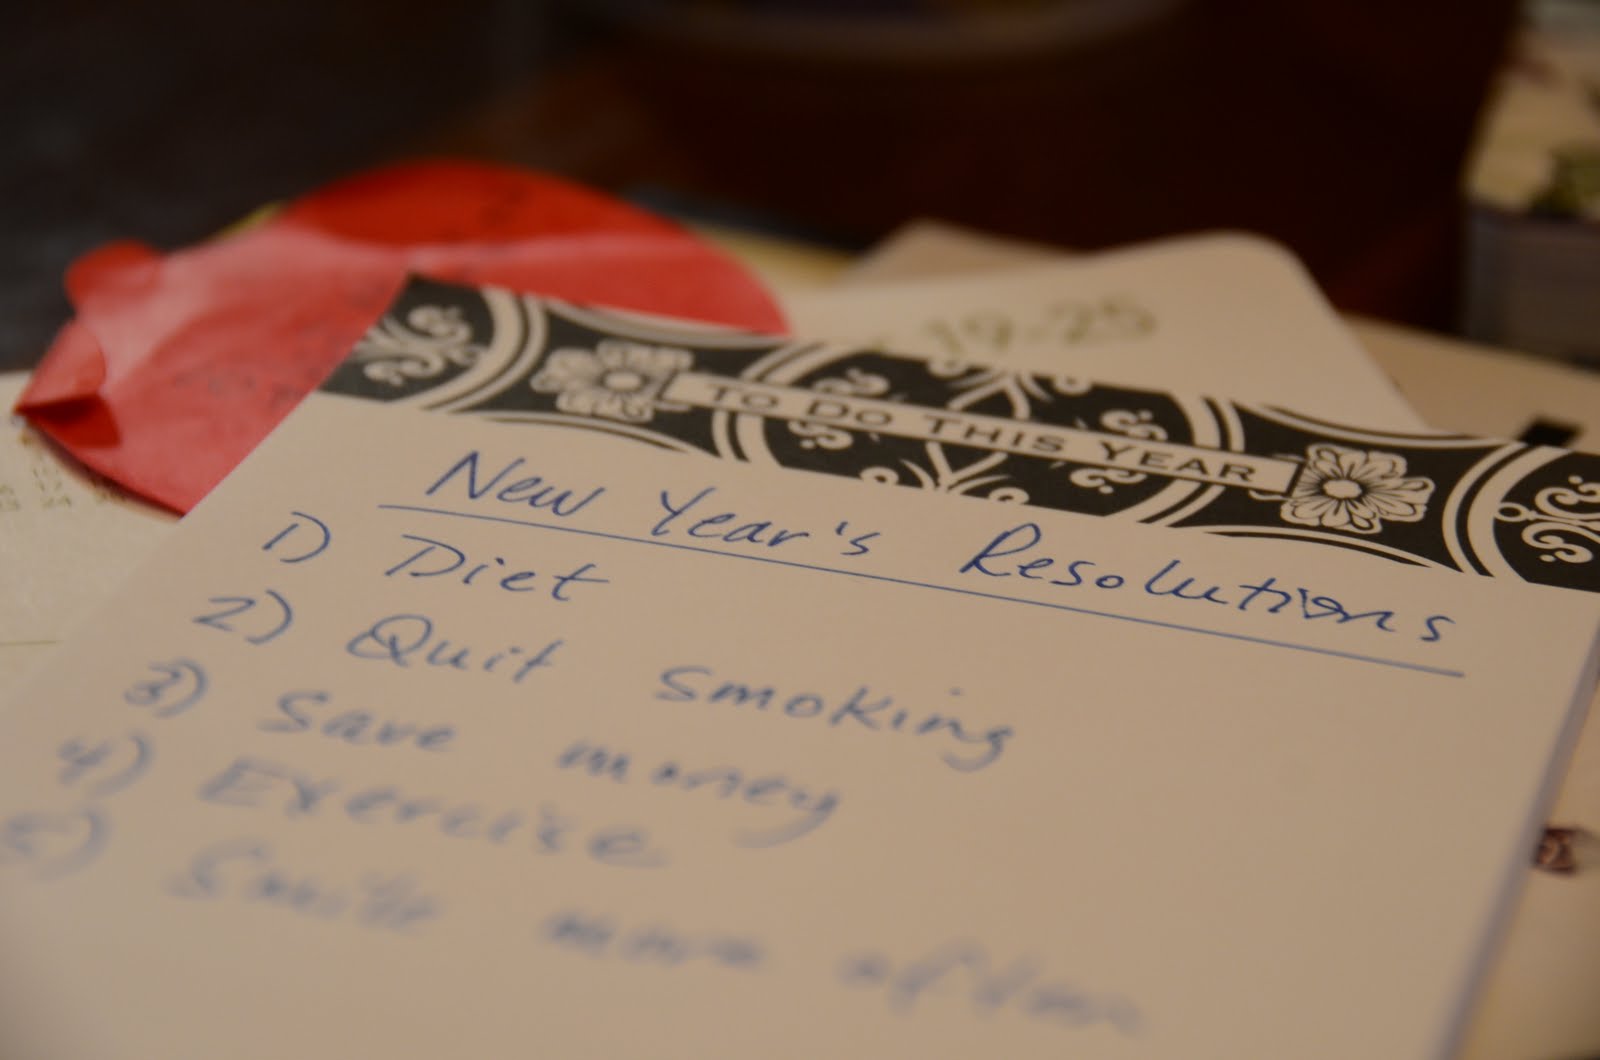 19-25
TO DO THIS YEAR
New Year's Resolutions
1) Diet
2) Quit smoking
3) Save money
4) Exercise
5) Smile more often